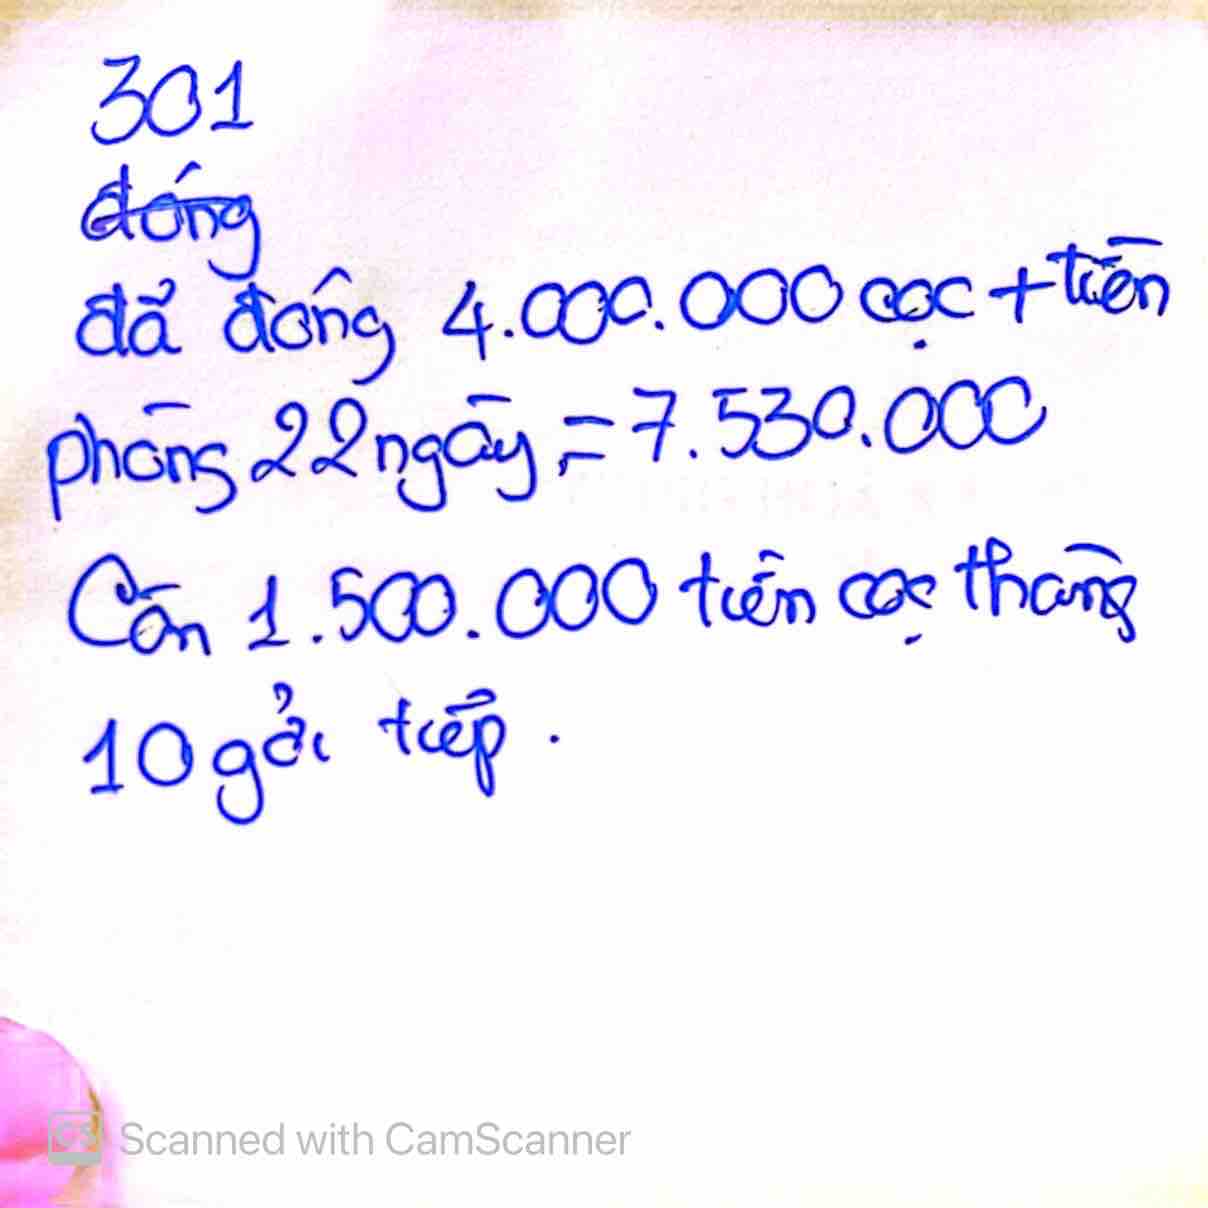 301
đóng
đã đóng 4.000.000 cọc + tiền
phòng 22 ngày = 7.530.000
Còn 1.500.000 tiền cọc tháng
10 gởi tiếp.
CS Scanned with CamScanner